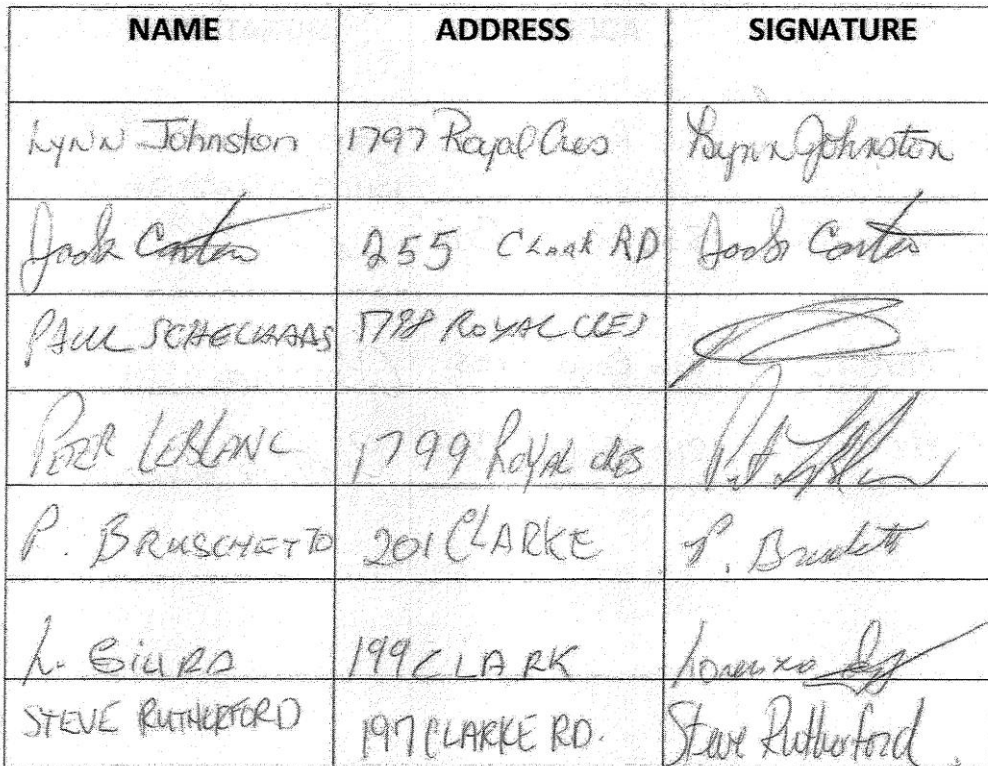 NAME ADDRESS SIGNATURE
Lynn Johnston 1797 Royal Cres Lynn Johnston
255 Clark RD
PAUL 1798 ROYAL CRES
PETER LEBLANC 1799 ROYAL CRES
P. BRUSCHETTO 201 CLARKE P.
L. 199 CLARK Lorenzo
STEVE RUTHERFORD 197 CLARKE RD. Steve Rutherford